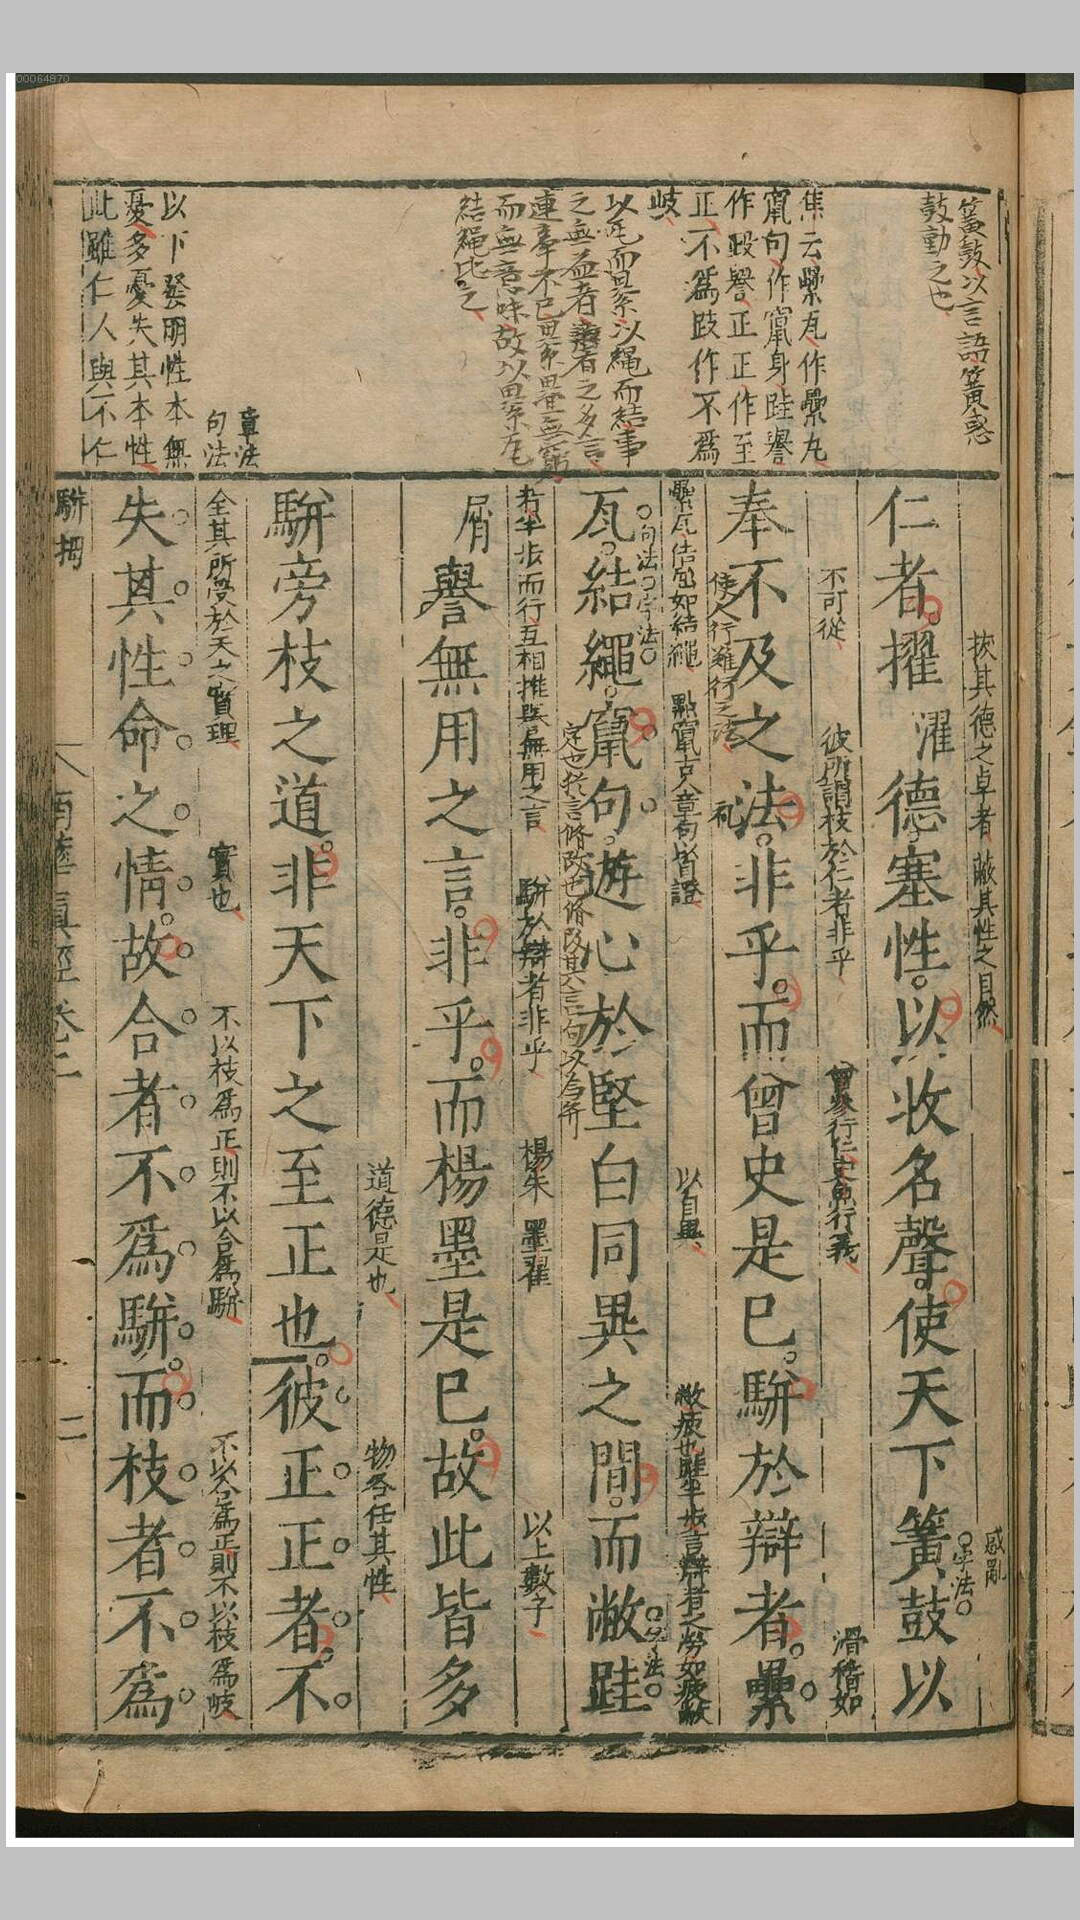 00064870
簧鼓以言語簧惑
鼓動之也
焦云纍瓦作纍丸
竄句作竄身跬譽
作毀譽正正作至
正不爲跂作不爲
歧
以瓦而累以繩而結事
之無益者辯者之多言
連章不已累疊無窮
而無意味故以累瓦
結繩比之
章法
句法
以下發明性本無
憂多憂失其本性
此雖仁人與不仁
拔其德之卓者 蔽其性之自然
惑亂
仁者擢濯德塞性以收名聲使天下簧鼓以
字法
不可從 彼所謂枝於仁者非乎 曾參行仁史魚行義 滑稽如
奉不及之法非乎而曾史是已駢於辯者纍
使人行難行之法
纍瓦結繩 點竄古人章句以自證 以自異
句法 字法
瓦結繩竄句遊心於堅白同異之間而敝跬
字法
定也於言脩改也脩改其言句以爲
者半步而行互相推與無用之言 駢於辯者非乎 楊朱 墨翟 以上數子
屑譽無用之言非乎而楊墨是已故此皆多
道德是也 物各任其性
駢旁枝之道非天下之至正也彼正正者不
全其所受於天之實理 實也 不以枝爲正則不以合爲駢 不以合爲正則不以枝爲歧
失其性命之情故合者不爲駢而枝者不爲
駢拇
南華真經卷二
二